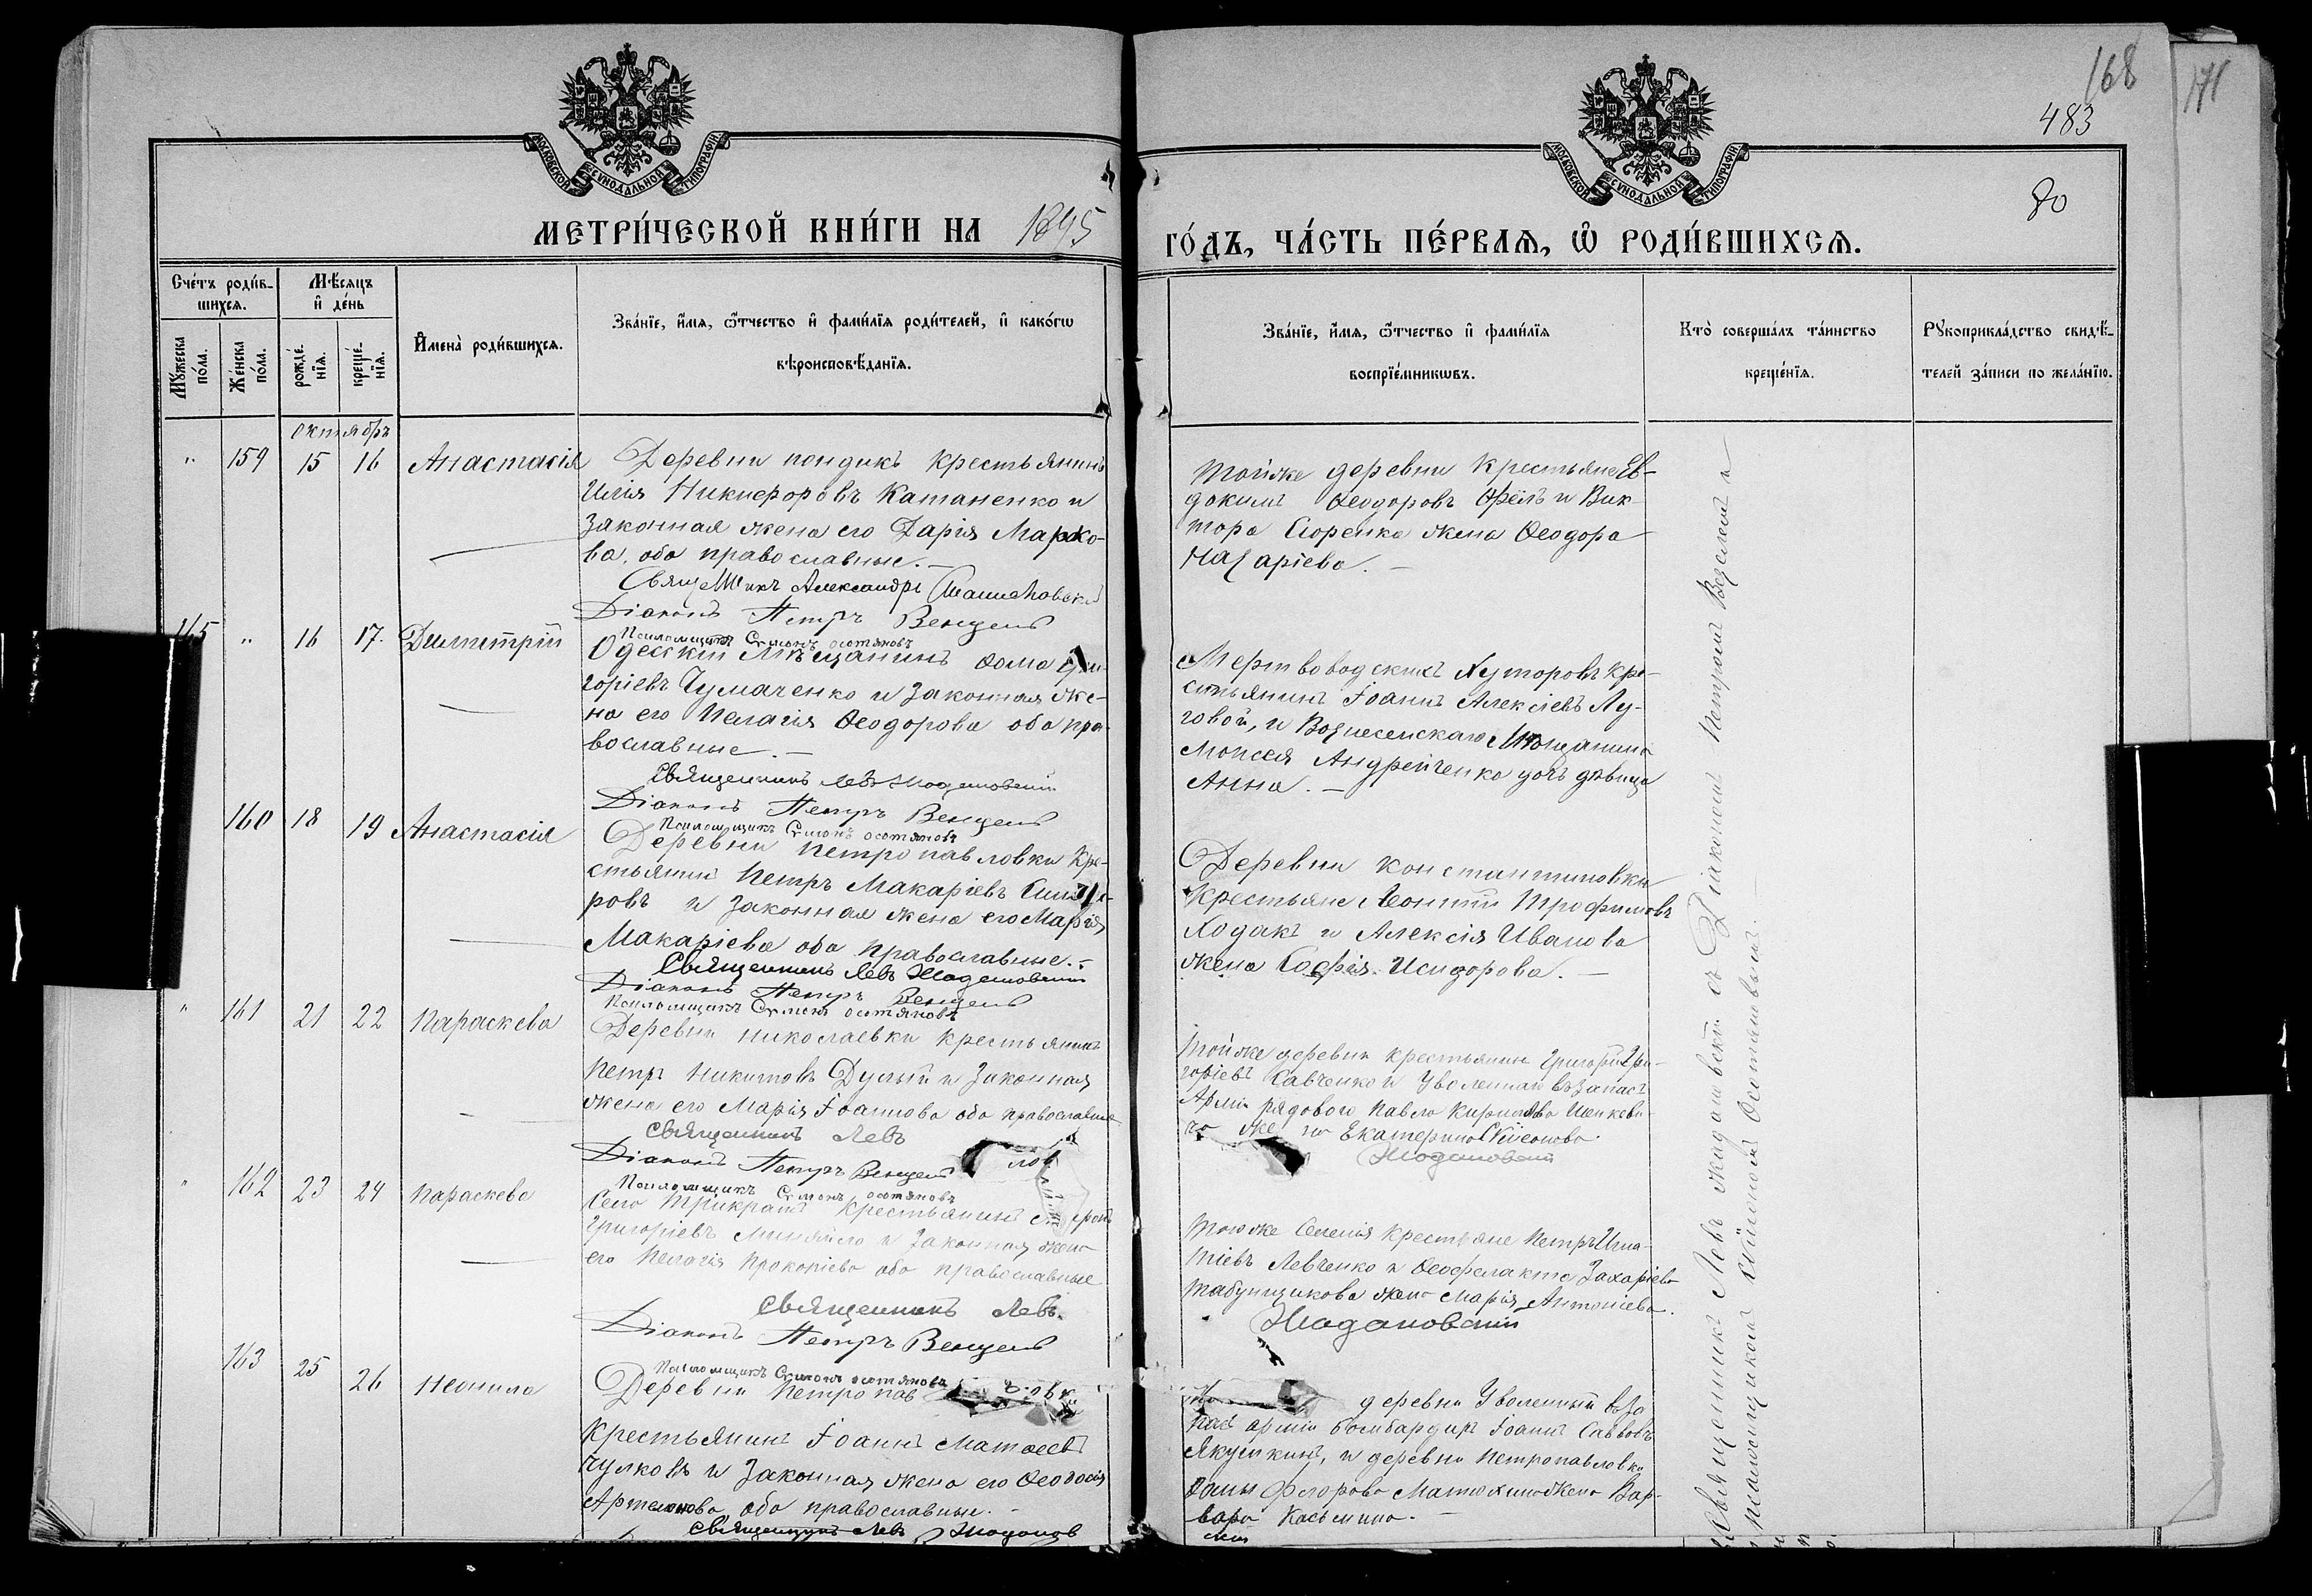 168
171
483
80
МОСКОВСКОЙ СѴНОДАЛЬНОЙ ТИПОГРАФІИ
МОСКОВСКОЙ СѴНОДАЛЬНОЙ ТИПОГРАФІИ
МЕТРИ́ЧЕСКОЙ КНИ́ГИ НА 1895
ГО́ДЪ, ЧА́СТЬ ПЕ́РВАѦ, Ѿ РОДИ́ВШИХСѦ.
Сче́тъ роди́в-
шихсѧ.
Мѣ́сяцъ
и҆ де́нь
Мꙋ́жеска по́ла.
Же́нска по́ла.
рожде́-
нїѧ.
креще́-
нїѧ.
И҆мена̀ роди́вшихсѧ.
Зва́нїе, и҆́мѧ, ѻ҆́тчество и҆ фами́лїѧ роди́телей, и҆ како́гѡ
вѣроисповѣ́данїѧ.
Зва́нїе, и҆́мѧ, ѻ҆́тчество и҆ фами́лїѧ
воспрїе́мникѡвъ.
Кто̀ соверша́лъ та́инство
креще́нїѧ.
Рꙋкоприкла́дство свидѣ́-
телей за́писи по жела́нїю.
Октябрь
" 159 15 16 Анастасія
Деревни пондикъ крестьянинъ
Илія Никифоровъ Катаненко и
законная жена его Дарія Марко-
ва, оба православные.
Священникъ Александръ
Діаконъ Петръ Венцель
Псаломщикъ Сѵмеонъ
Тойже деревни крестьяне Ев-
докимъ Ѳеодоровъ Орелъ и Вик-
тора Сюренка жена Ѳеодора
Назаріева.
165 " 16 17. Димитрій
Одесскій Мѣщанинъ Ѳома Гри-
горіевъ Чумаченко и законная же-
на его Пелагія Ѳеодорова оба пра-
вославные.
Священникъ Левъ Жадановскій
Діаконъ Петръ Венцель
Псаломщикъ Сѵмеонъ
Мертвоводскихъ Хуторовъ кре-
стьянинъ Іоаннъ Алексіевъ Лу-
говой, и Вознесенскаго Мѣщанина
Моисея Андрейченко дочь дѣвица
Анна.
160 18 19 Анастасія
Деревни Петропавловки кре-
стьянинъ Петръ Макаріевъ
ровъ и законная жена его Марія
Макаріева оба православные.
Священникъ Левъ Жадановскій
Діаконъ Петръ Венцель
Псаломщикъ Сѵмеонъ
Деревни Константиновки
крестьяне Леонтій Трофимовъ
Ходакъ и Алексія Иванова
жена Софія Исидорова.
" 161 21 22 Параскева
Деревни Николаевки крестьянинъ
Петръ Никитовъ Дулый и законная
жена его Марія Іоаннова оба православные
Священникъ Левъ
Діаконъ Петръ Венцель
Псаломщикъ Сѵмеонъ
Тойже деревни крестьянинъ Григорій Гри-
горіевъ Савченко и Уволеннаго въ запасъ
Арміи рядового Павла
жена Екатерина
Жадановскій
" 162 23 24 Параскева
Село Трикратъ крестьянинъ
Григорієвъ и законная жена
его Пелагія Прокопіева оба православные
Священникъ Левъ
Діаконъ Петръ Венцель
Псаломщикъ Сѵмеонъ
Тогоже Селенія крестьяне Петръ Игна-
тіевъ Левченко и Ѳеофилакта Захаріева
Табунщикова жена Марія Антоніева.
Жадановскій
163 25 26 Неонила
Деревни Петропав
крестьянинъ Іоаннъ Матѳеевъ
Чулковъ и законная жена его Ѳеодосія
Артемонова, оба православные.
Священникъ Левъ Жаданов
деревни Уволенный въ за
пасъ арміи бомбардиръ Іоаннъ Саввовъ
Якушкинъ, и деревни Петропавловки
жена Вар-
вара Касьмина.
скій
Священникъ Левъ Жадановскій съ Діакономъ Петромъ Венцелемъ и
Псаломщикомъ Сѵмеономъ